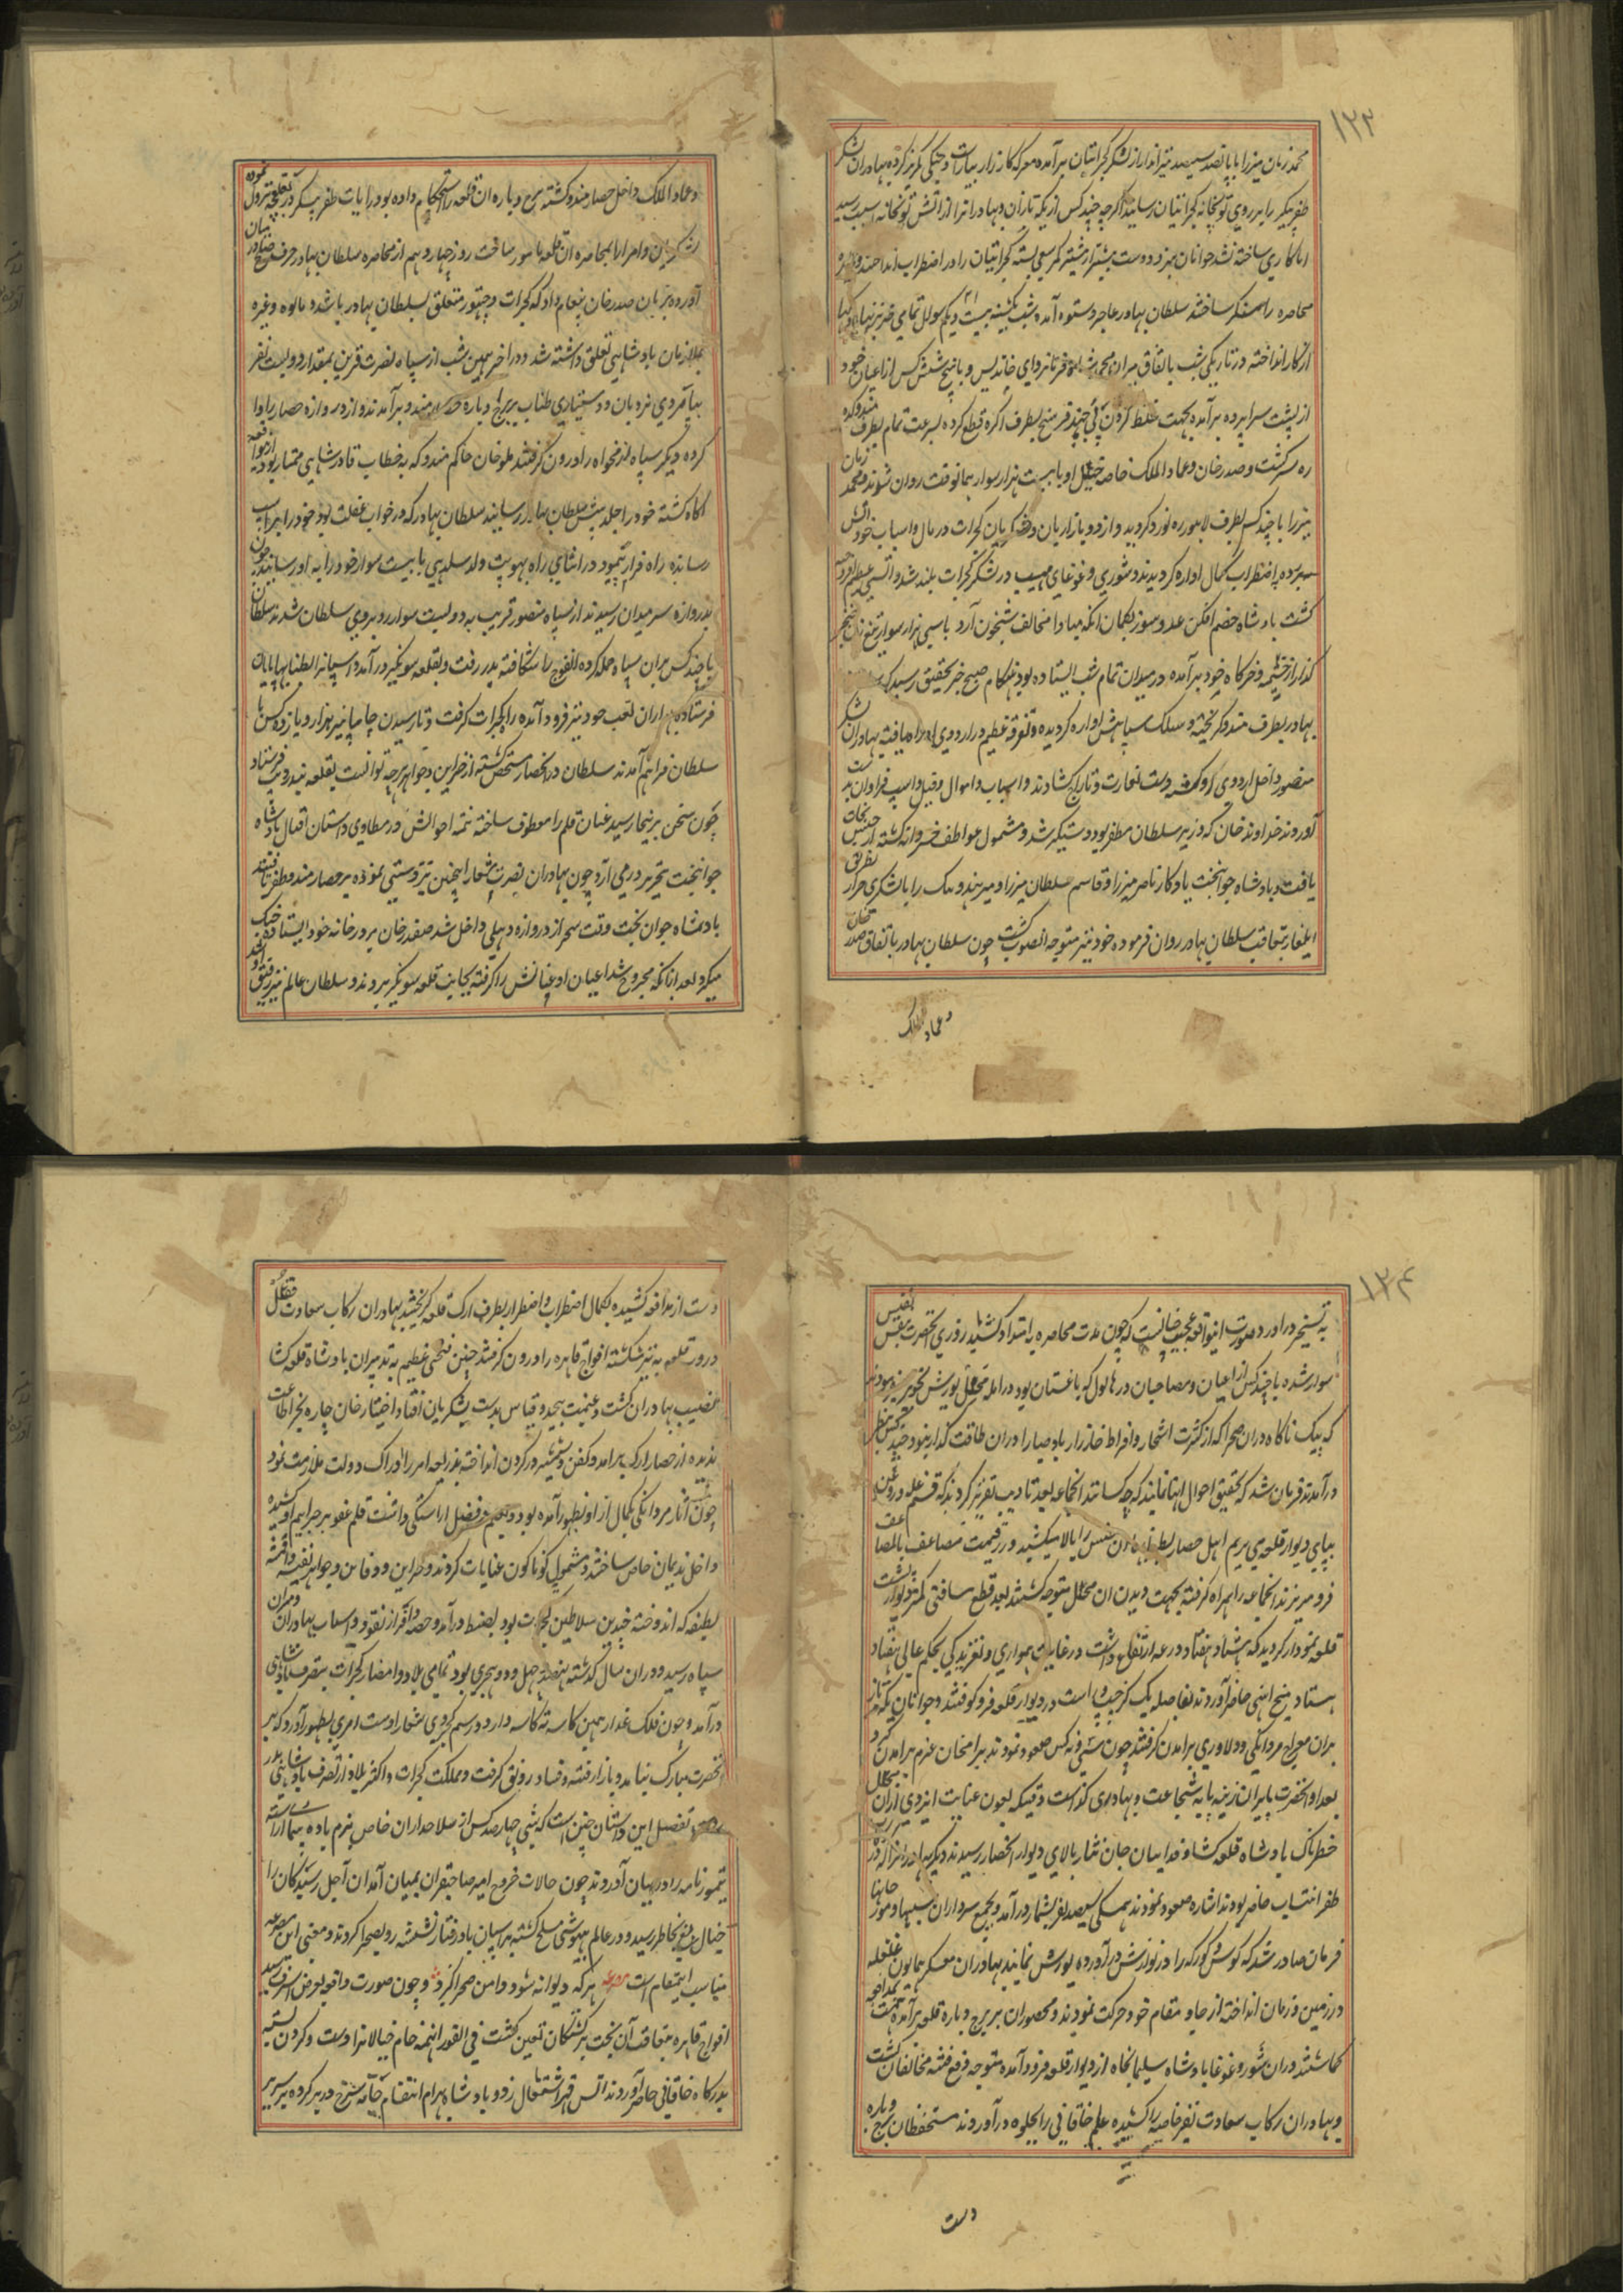 ۱۲۳
محمد زمان میرزا با پانصد سیصد تیرانداز از لشکر کجراتیان برآمده معرکه کارزار بیاراست و جنکی کریز کرده بهادران لشکر
ظفر پیکر را بر روی توپخانه کجراتیان رسانید اکرچه چند کس از یکه تازان و بهادران را از آتش توپخانه آسیب رسید
اما کاری ساخته نشد جوانان هنردوست بیشتر از پیشتر کمر سعی بسته کجراتیان را در اضطراب انداختند و دایره
محاصره را تنک ساختند سلطان بهادر عاجز و ستوه آمده شب یکشنبه بیست و یکم شوال تمامی ضرب زنها و دیکها
از کار انداخته در تاریکی شب باتفاق میران محمد شاه فرمانروای خاندیس و با پنج شش کس از اعیان خود
از پشت سراپرده برآمده بجهت غلط کردن پی چند فرسخ بطرف اکره قطع کرده بسرعت تمام بطرف مندو کرده
ره سر کشت و صدر خان و عماد الملک خاصه خیل او با بیست هزار سوار همانوقت روان شدند و محمد زمان
میرزا با چند کس بطرف لاهور ره نورد کردید و اردو بازاریان و لشکریان کجرات در مال و اسباب خود آتش
سپرده باضطراب کمال آواره کردیدند و شوری و غوغای مهیب در لشکر کجرات بلند شد و آتشی عظیم افروخته
کشت بادشاه خصم افکن عدو سوز بکمان آنکه مبادا مخالف شبخون آرد با سی هزار سوار تیغ زن خنجر
کذار از خیمه و خرکاه خود برآمده در میدان تمام شب ایستاده بود هنکام صبح خبر بتحقیق رسید که
بهادر بطرف مندو کریخته و سلک سپاهش آواره کردیده و تفرقه عظیم در اردوی او راه یافت بهادران لشکر
منصور داخل اردوی او کشته دست بغارت و تاراج کشادند و اسباب و اموال و فیل و اسپ فراوان بدست
آوردند خداوند خان که وزیر سلطان مظفر بود دستکیر شد و مشمول عواطف خسروانه کشته از حبس نجات
یافت و بادشاه جوانبخت یادکار ناصر میرزا و قاسم سلطان میرزا و میر هندو بیک را با لشکری جرار بطریق
ایلغار بتعاقب سلطان بهادر روان فرموده خود نیز متوجه آنصوب کشت چون سلطان بهادر باتفاق صدر خان
و عماد الملک
و عماد الملک داخل حصار مندو کشته برج و باره آن قلعه را استحکام داده بود رایات ظفر پیکر در نعلچه نزول نموده
لشکریان و امرا را بمحاصره آن قلعه مامور ساخت روز چهاردهم از محاصره سلطان بهادر حرف صلح در میان
آورده بزبان صدر خان پیغام داد که کجرات و چتور متعلق بسلطان بهادر باشد و مالوه وغیره
بملازمان بادشاهی تعلق داشته شد و در آخر همین شب از سپاه نصرت قرین بمقدار دویست نفر
بپایمردی نردبان و دستیاری طناب ببرج و باره حصار مندو برآمدند و از در دروازه حصار را وا
کرده دیکر سپاه رزمخواه را درون کرفتند ملو خان حاکم مندو که بخطاب قادر شاهی ممتاز بود ازین واقعه
آکاه کشته خود را جلد پیش سلطان بهادر رسانید سلطان بهادر که در خواب غفلت بود خود را بر اسپ
رسانده راه فرار پیمود در اثنای راه بهوپت ولد سلهدی با بیست سوار خود را باو رسانید چون
بدروازه سر میدان رسیدند از سپاه منصور قریب به دویست سوار روبروی سلطان شدند سلطان
با چند کس بران سپاه حمله کرده آنفوج را شکافته بدر رفت و بقلعه سونکیر درآمد و اسپانرا بطنابها پایان
فرستاده یاران تعب خود نیز فرود آمده راه کجرات کرفت و تا رسیدن چانپانیر هزار و پانزده کس با
سلطان فراهم آمدند سلطان در آنحصار متحصن کشته از خزاین و جواهر هرچه توانست بقلعه بندر دیب فرستاد
چون سخن برینجا رسید عنان قلم را معطوف ساخته تتمه احوالش در مطاوی داستان اقبال بادشاه
جوانبخت بتحریر درمی آرد چون بهادران نصرت شعار اینچنین تردستی نموده بر حصار مندو ظفر یافتند
بادشاه جوان بخت وقت سحر از دروازه دهلی داخل شد صفدر خان بر در خانه خود ایستاده جنک
میکرد بعد ازانکه مجروح شد اعیان او عنانش را کرفته بجانب قلعه سونکیر بردند و سلطان عالم نیز رفیق او شد
۱۲۴
به تسخیر درآورد صورت اینواقعه عجیب چنانست که چون مدت محاصره بامتداد کشید روزی آنحضرت بنفس نفیس
سوار شده با چند کس از اعیان و مصاحبان در هالول که باغستان بود در آمده محل یورش تجویز میفرمودند
که بیک ناکاه دران صحرا که از کثرت اشجار و افراط خارزار باد صبا را دران طاقت کذار نبود چند کس بنظر
درآمدند فرمان شد که تحقیق احوال اینها نمایند که چه کسانند آنجماعه بعد تادیب تقریر کردند که قسم غله و روغن
بپای دیوار قلعه می بریم اهل حصار بطناب آن جنس را بالا میکشند و زر قیمت مضاعف بالمضاعف
فرو میریزند آنجماعه را همراه کرفته بجهت دیدن آن محل متوجه کشتند بعد قطع مسافتی کمتر دیوار پشت
قلعه نمودار کردید که هشتاد هفتاد درعه ارتفاع داشت در غایت همواری و لغزیدکی بحکم عالی هفتاد
هشتاد میخ آهنی حاضر آوردند بفاصله یک کز چپ و راست در دیوار قلعه فرو کوفتند و جوانان یکه تاز
بران معراج مردانکی و دلاوری برآمدن کرفتند چون سی و نه کس صعود نمودند بیرام خان عزم برآمدن کرد
بعد او آنحضرت باینان زینه پایه شجاعت و بهادری کذاشت دقیکه بعون عنایت ایزدی ازان محل
خطرناک بادشاه قلعه کشا و فدائیان جان نثار بالای دیوار آنحصار رسیدند دیکر بهادران را که در رکاب
ظفر انتساب حاضر بودند اشاره صعود نمودند همکی سیصد نفر بشمار درآمد و بجمیع سرداران سپاه مورچالها
فرمان صادر شد که کوس و کورکه را در نوازش درآورده یورش نمایند بهادران معسکر همایون غلغله
در زمین و زمان انداخته از جا و مقام خود حرکت نمودند و محصوران بر برج و باره قلعه برآمده همت بمدافعه
کماشتند دران شور و غوغا بادشاه سلیمانجاه از دیوار قلعه فرود آمده متوجه دفع فتنه مخالفان کشت
و بهادران رکاب سعادت نفیر خاصه را کشیده علم خاقانی را بجلوه درآوردند مستحفظان برج و باره
دست
دست از مدافعه کشیده بکمال اضطراب و اضطرار بطرف ارک قلعه کریختند بهادران رکاب سعادت قفل
در دروازه قلعه به تبر شکسته افواج قاهره را درون کرفتند چنین فتحی عظیم به تدبیران بادشاه قلعه کشا
نصیب بهادران کشت و غنیمت بیحد و قیاس بدست لشکریان افتاد اختیار خان چاره بجز اطاعت
ندیده از حصار ارک برآمد و کفن و شمشیر در کردن انداخته بذریعه امرا ادراک دولت ملازمت نمود
چون آثار مردانکی بکمال از او بظهور آمده بود و بعلم و فضل آراستکی داشت قلم عفو بر جرایم او کشیده
داخل ندیمان خاص ساختند و مشمول کوناکون عنایات کردند و خزاین و دفاین و جواهر نفیسه و اقمشه
لطیفه که اندوخته چندین سلاطین کجرات بود بضبط درآمد و حصه وافر از نقود و اسباب بهادران و سران
سپاه رسید و دران سال که سنه نهصد و چهل و دو هجری بود تمامی بلاد و امصار کجرات بتصرف بادشاهی
درآمد و چون فلک غدار همین کاسه ته کاسه دارد و رسم کجروی شعار اوست امری بظهور آورد که بر
آنحضرت مبارک نیامد و بازار فتنه و فساد رونق کرفت و مملکت کجرات و اکثر بلاد از تصرف بادشاهی بدر
تفصیل این داستان چنین است که شبی چهارصد کس از سلاحداران خاص بزم باده پیما آراسته
تیمور نامه را در بیان آوردند چون حالات خروج امیر صاحبقران بمیان آمد آن اجل رسیدکان را
خیال بدیع بخاطر رسید و در عالم بیهوشی مسلح کشته بر اسپان بادرفتار نشسته رو بصحرا کردند و معنی این مصرعه
مناسب اینمقام است مصرعه هر که دیوانه شود دامن صحرا کیرد و چون صورت واقعه بعرض اشرف رسید
افواج قاهره بتعاقب آن بخت برکشتکان تعین کشت فی الفور اینهمه خام خیالان را دست و کردن بسته
بدرکاه خاقانی حاضر آوردند آتش قهر اشتعال زد و بادشاه بهرام انتقام جامه سرخ در بر کرده بر سریر